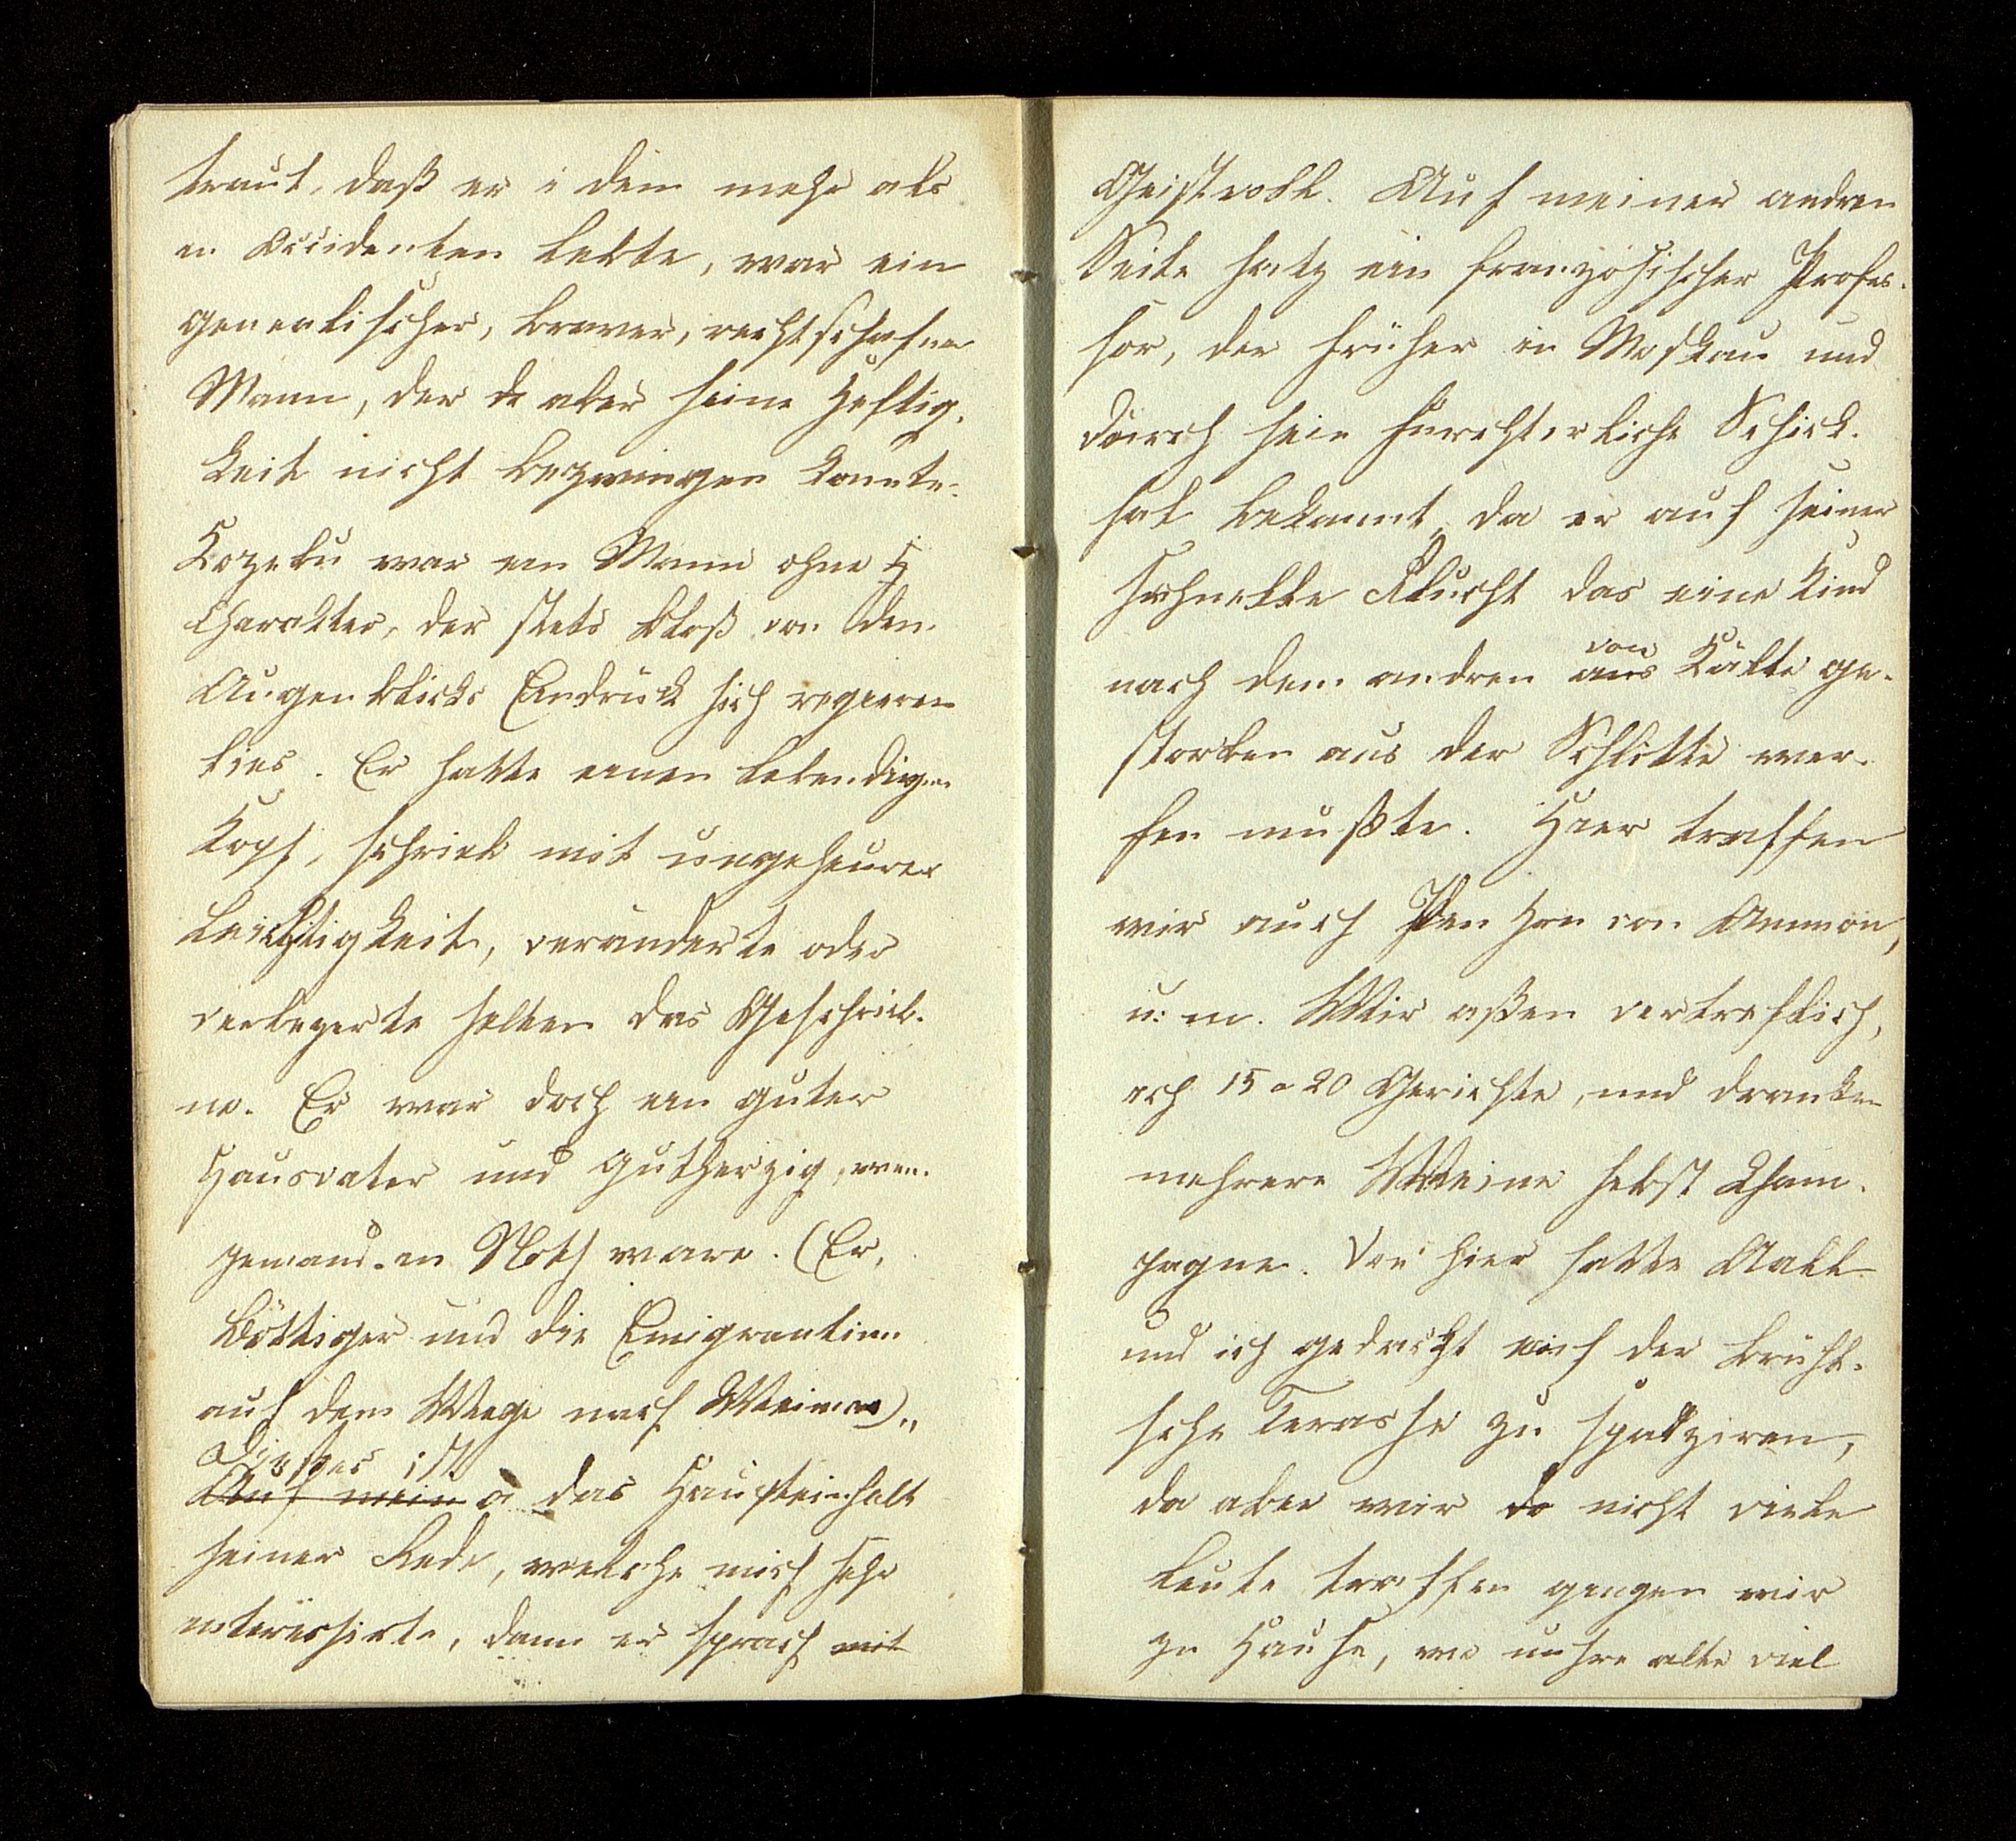 traut, daß er i dem mehr als
in Occidenten lebte, war ein
genialischer, braver, rechtschafner
Mann, der de aber seine Heftig-
keit nicht bezwingen konnte.
Kozebu war ein Mann ohne H
Charakter, der stets bloß von den
Augenblicks Eindruck sich regieren
lies. Er hatte einen lebendigen
Kopf, schrieb mit ungeheurer
Leichtigkeit, veränderte oder
verbezerte selten das Geschrieb-
ne. Er war doch ein guter
Hausvater und gutherzig, wen
jemand in Noth ware. (Er,
Böttiger und die Emigrantinn
auf dem Wege nach Weimar)„
Dieses ist
Auf mein a das Haupteinhalt
seiner Rede, welche mich sehr
interessirte, dann er sprach mit
Geistvoll. Auf meiner andren
Seite satz ein französischer Profes-
sor, der früher in Moskau und
durch sein fürchterliche Schick-
sal bekannt, da er auf seiner
schnelle Flucht das eine Kind
von
nach dem andren aus Kälte ge-
storben aus der Schlitte wer-
fen mußte. Hier traffen
wir auch Den Hrn von Ammon,
u: m. Wir aßen vortreflich,
och 15 a 20 Gerichte, und dranken
mehrere Weine selbst Cham-
pagne. Von hier hatte Aall
und ich gedacht auf der Brühl-
sche Terasse zu spatziren,
da aber wir do nicht viele
Leute traffen gingen wir
zu Hause, wo unsre alte viel